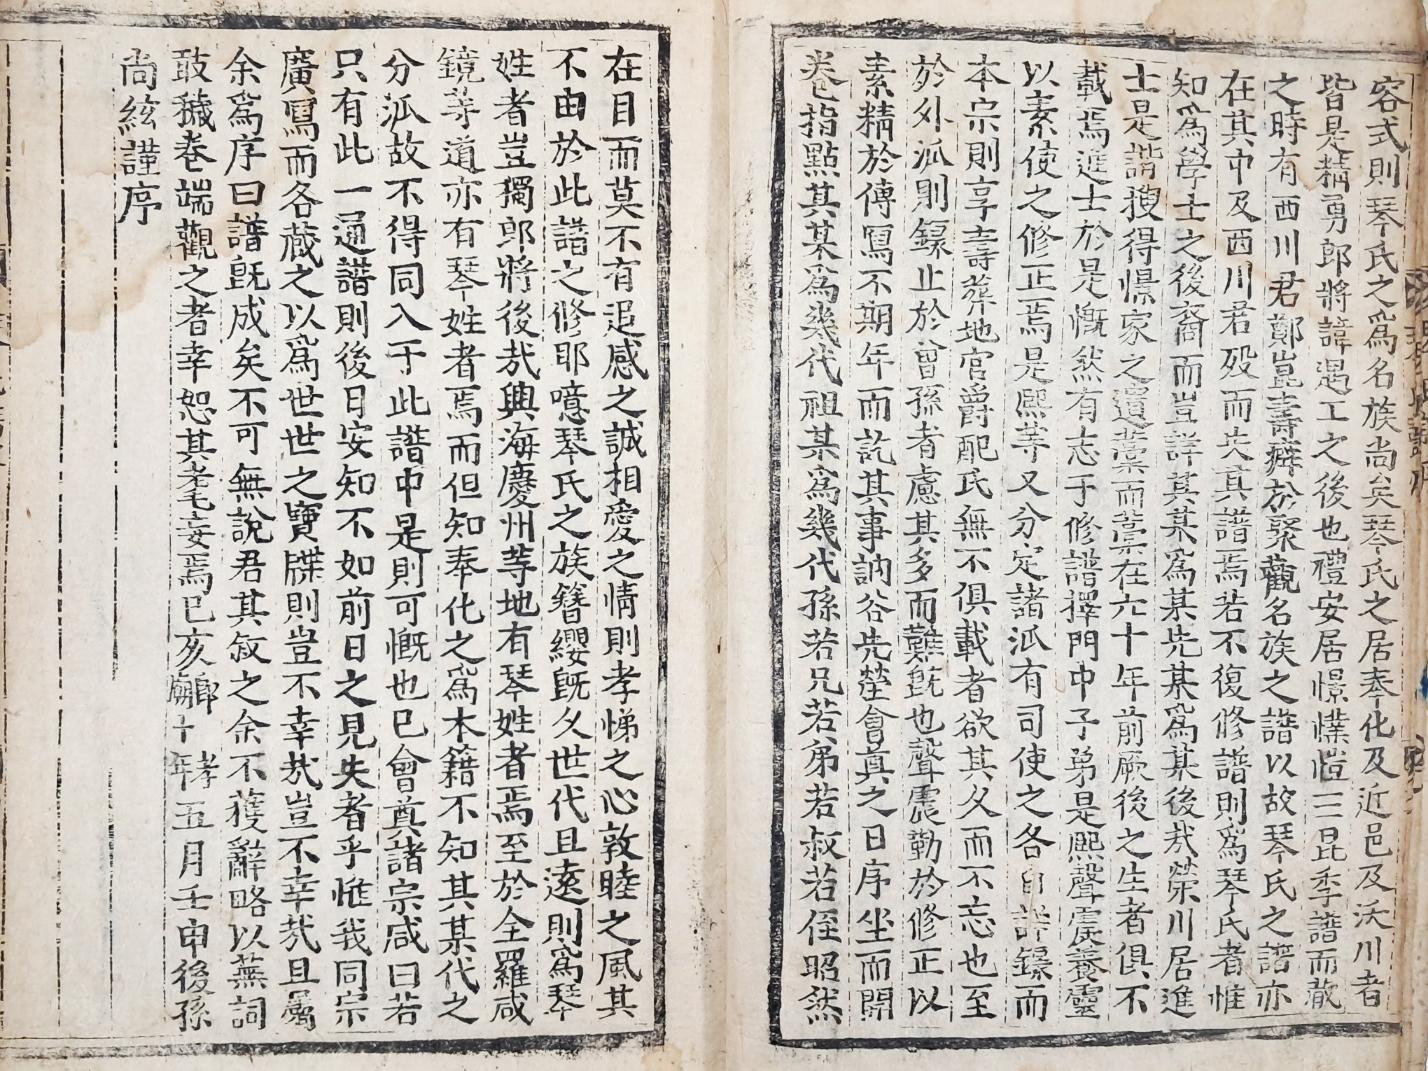 容式則琴氏之爲名族尚矣琴氏之居奉化及近邑及沃川者
皆是精勇郎將諱遇工之後也禮安居憬㦨愷三昆季譜而散
之時有西川君鄭崑壽癖於聚觀名族之譜以故琴氏之譜亦
在其中及西川君歿而失其譜焉若不復修譜則爲琴氏者惟
知爲學士之後裔而豈詳其某爲某先某爲某後㢤榮川居進
士是諧搜得憬家之遺藁而藁在六十年前厥後之生者俱不
載焉進士於是慨然有志于修譜擇門中子弟是熈聲震養靈
以素使之修正焉是熈䓁又分定諸派有司使之各自詳錄而
本宗則享壽葬地官爵配氏無不俱載者欲其久而不忘也至
於外派則錄止於曾孫者慮其多而難旣也聲震勤於修正以
素精於傳寫不期年而訖其事訥谷先塋會奠之日序坐而開
卷指點其某爲幾代祖某爲幾代孫若兄若弟若叔若侄昭然
在目而莫不有追感之誠相愛之情則孝悌之心敦睦之風其
不由於此譜之修耶噫琴氏之族簪纓旣久世代且遠則爲琴
姓者豈獨郎將後㢤興海慶州等地有琴姓者焉至於全羅咸
鏡等道亦有琴姓者焉而但知奉化之爲本籍不知其某代之
分派故不得同入于此譜中是則可慨也已會奠諸宗咸曰若
只有此一通譜則後日安知不如前日之見失者乎惟我同宗
廣寫而各藏之以爲世世之寶牒則豈不幸㢤豈不幸㢤且屬
余爲序曰譜旣成矣不可無說君其敍之余不獲辭略以蕪詞
敢穢卷端觀之者幸恕其耄妄焉已亥卽孝廟十年五月壬申後孫
尙絃謹序